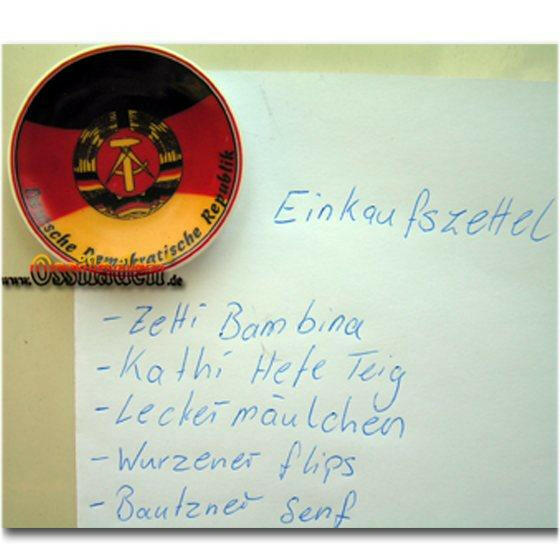 Deutsche Demokratische Republik
Einkaufszettel
www.Ossiladen.de
- Zetti Bambina
- Kathi Hefe Teig
- Leckermäulchen
- Wurzener flips
- Bautzner Senf